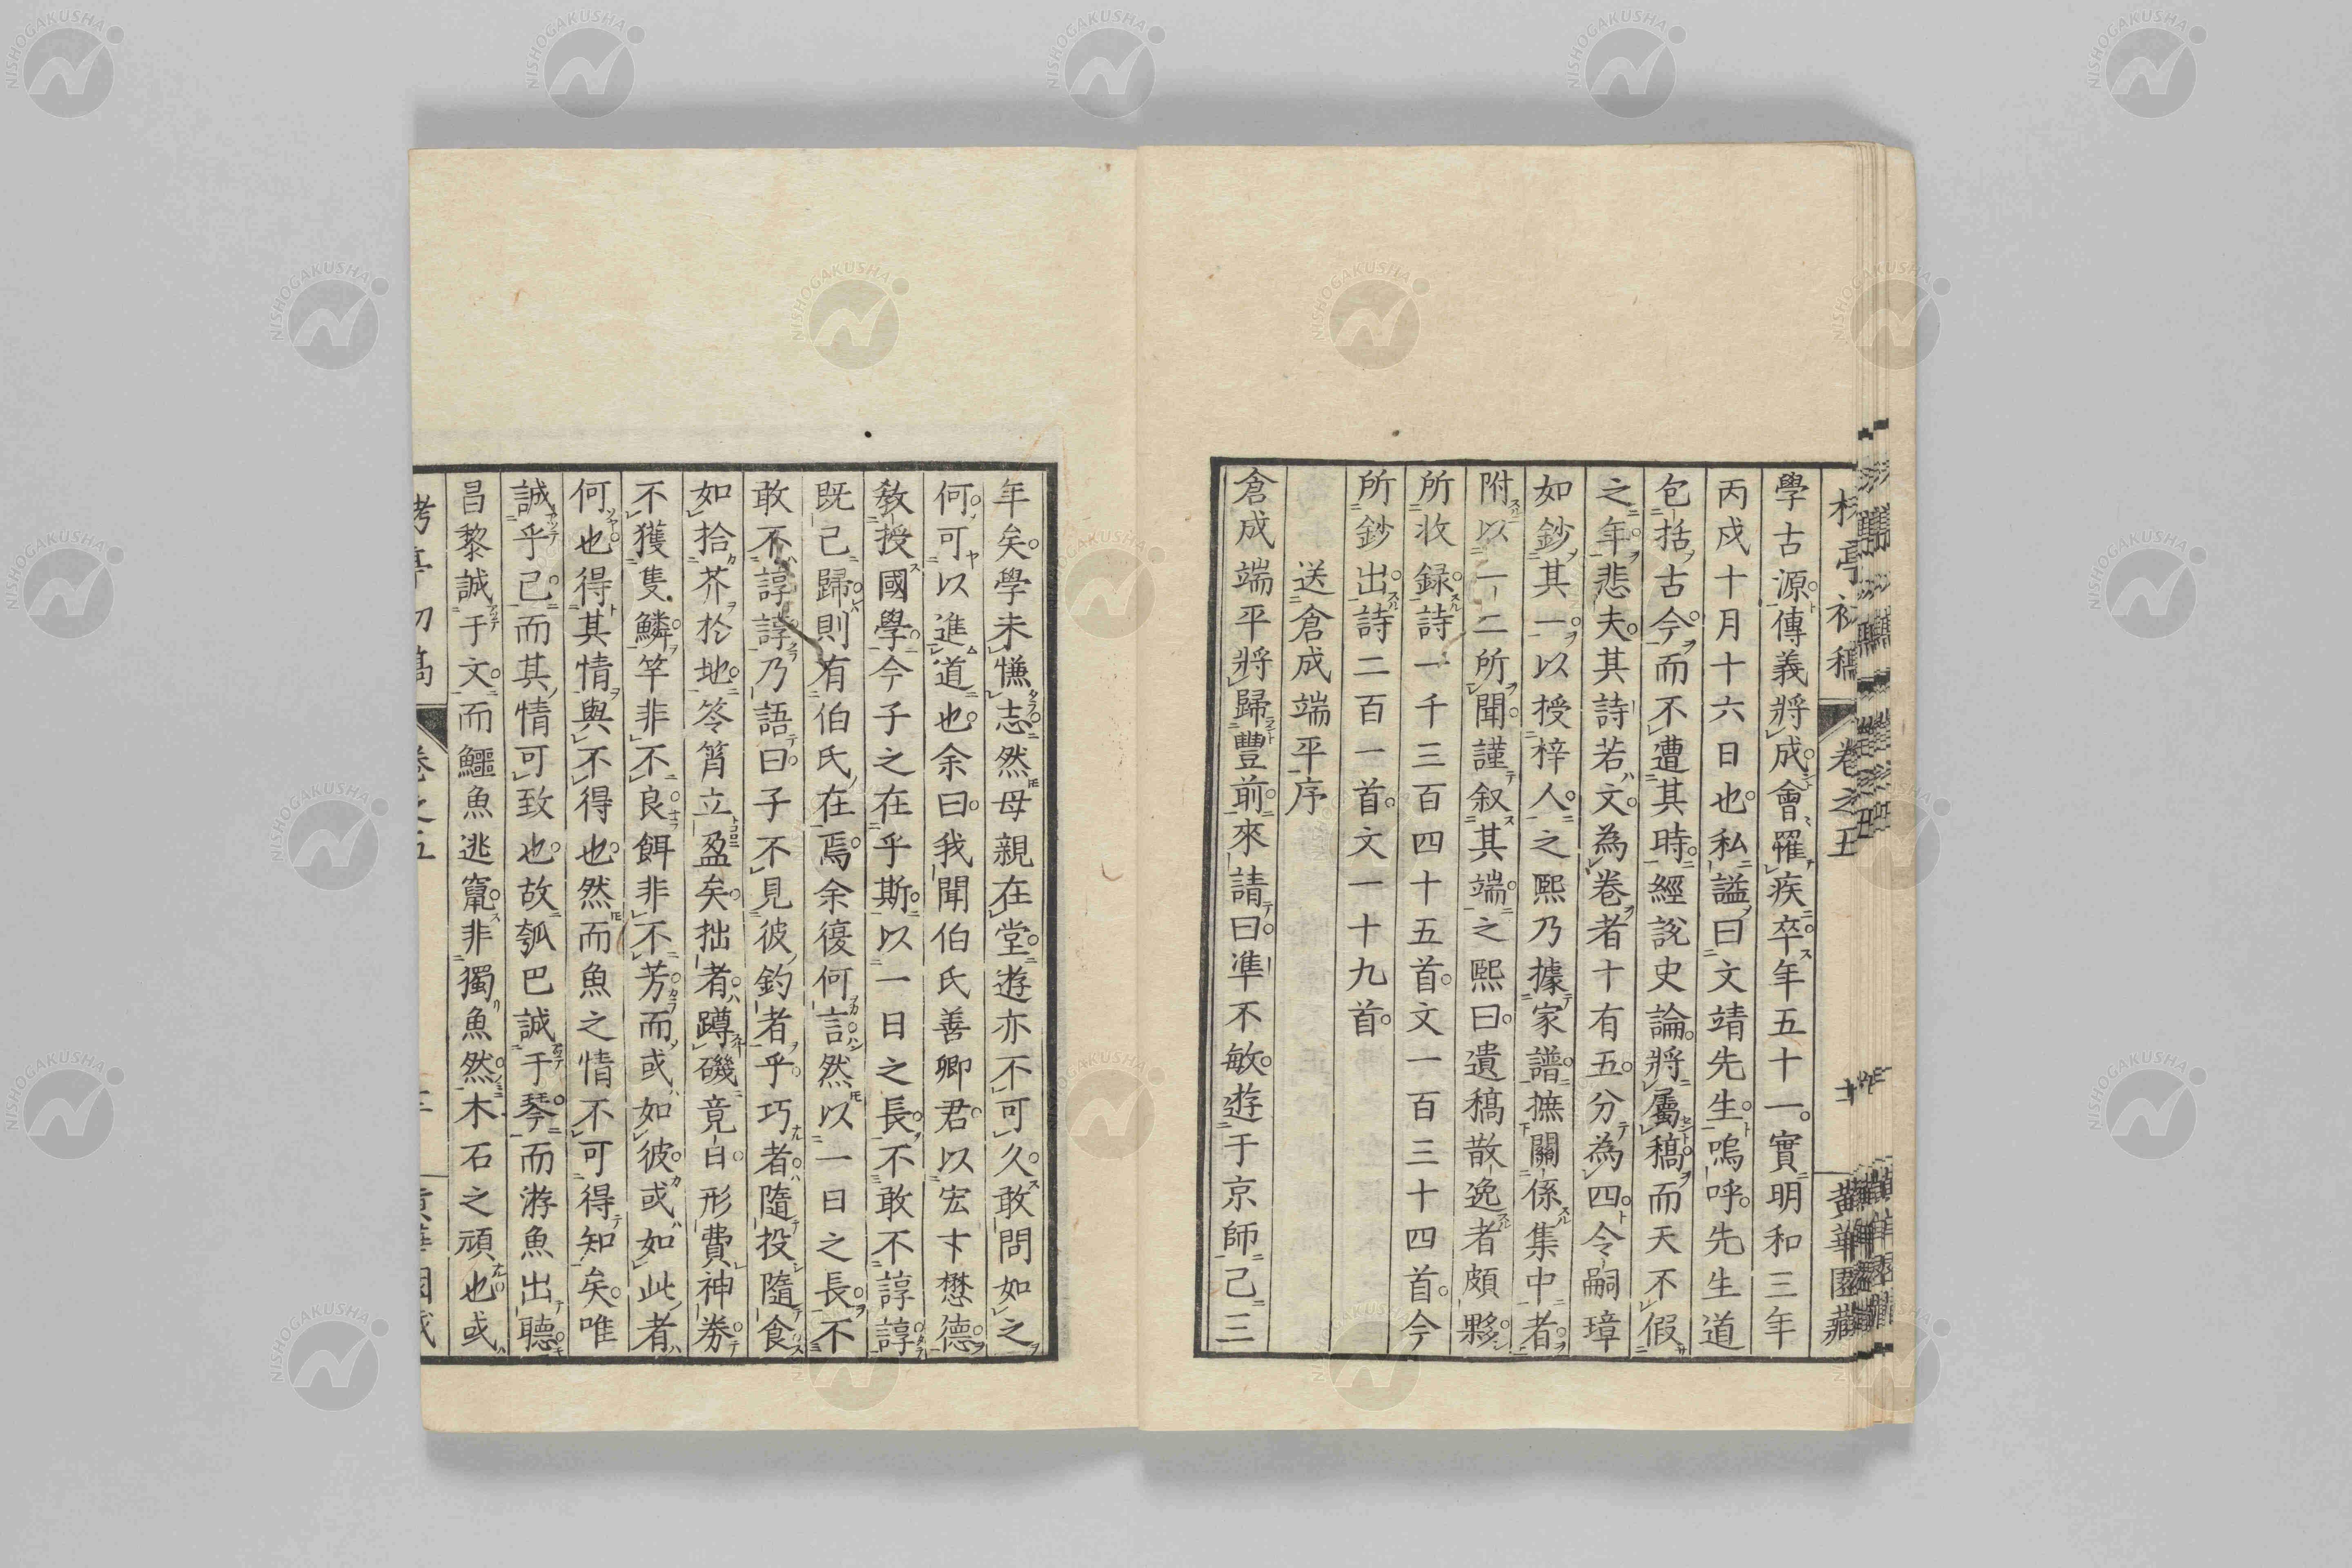 卷之五
黄華園藏
學古源傳義將成會罹疾卒年五十一實明和三年
丙戌十月十六日也私謚曰文靖先生嗚呼先生道
包括古今而不遭其時經說史論將屬稿而天不假
之年悲夫其詩若文為卷者十有五分為四令嗣璋
如鈔其一以授梓人之熙乃據家譜摭關係集中者
附以一二所聞謹叙其端之熙曰遺稿散逸者頗夥
所收録詩一千三百四十五首文一百三十四首今
所鈔出詩二百一首文一十九首
送倉成端平序
倉成端平將歸豐前來請曰準不敏遊于京師已三
年矣學未慊志然母親在堂遊亦不可久敢問如之
何可以進道也余曰我聞伯氏善卿君以宏才懋德
教授國學今子之在乎斯以一日之長不敢不諄諄
既已歸則有伯氏在焉余復何言然以一日之長不
敢不諄諄乃語曰子不見彼釣者乎巧者隨投隨食
如拾芥於地笭箵立盈矣拙者蹲磯竟日形費神劵
不獲隻鱗竿非不良餌非不芳而或如彼或如此者
何也得其情與不得也然而魚之情不可得知矣唯
誠乎已而其情可致也故瓠巴誠于琴而游魚出聽
昌黎誠于文而鱷魚逃竄非獨魚然木石之頑也或